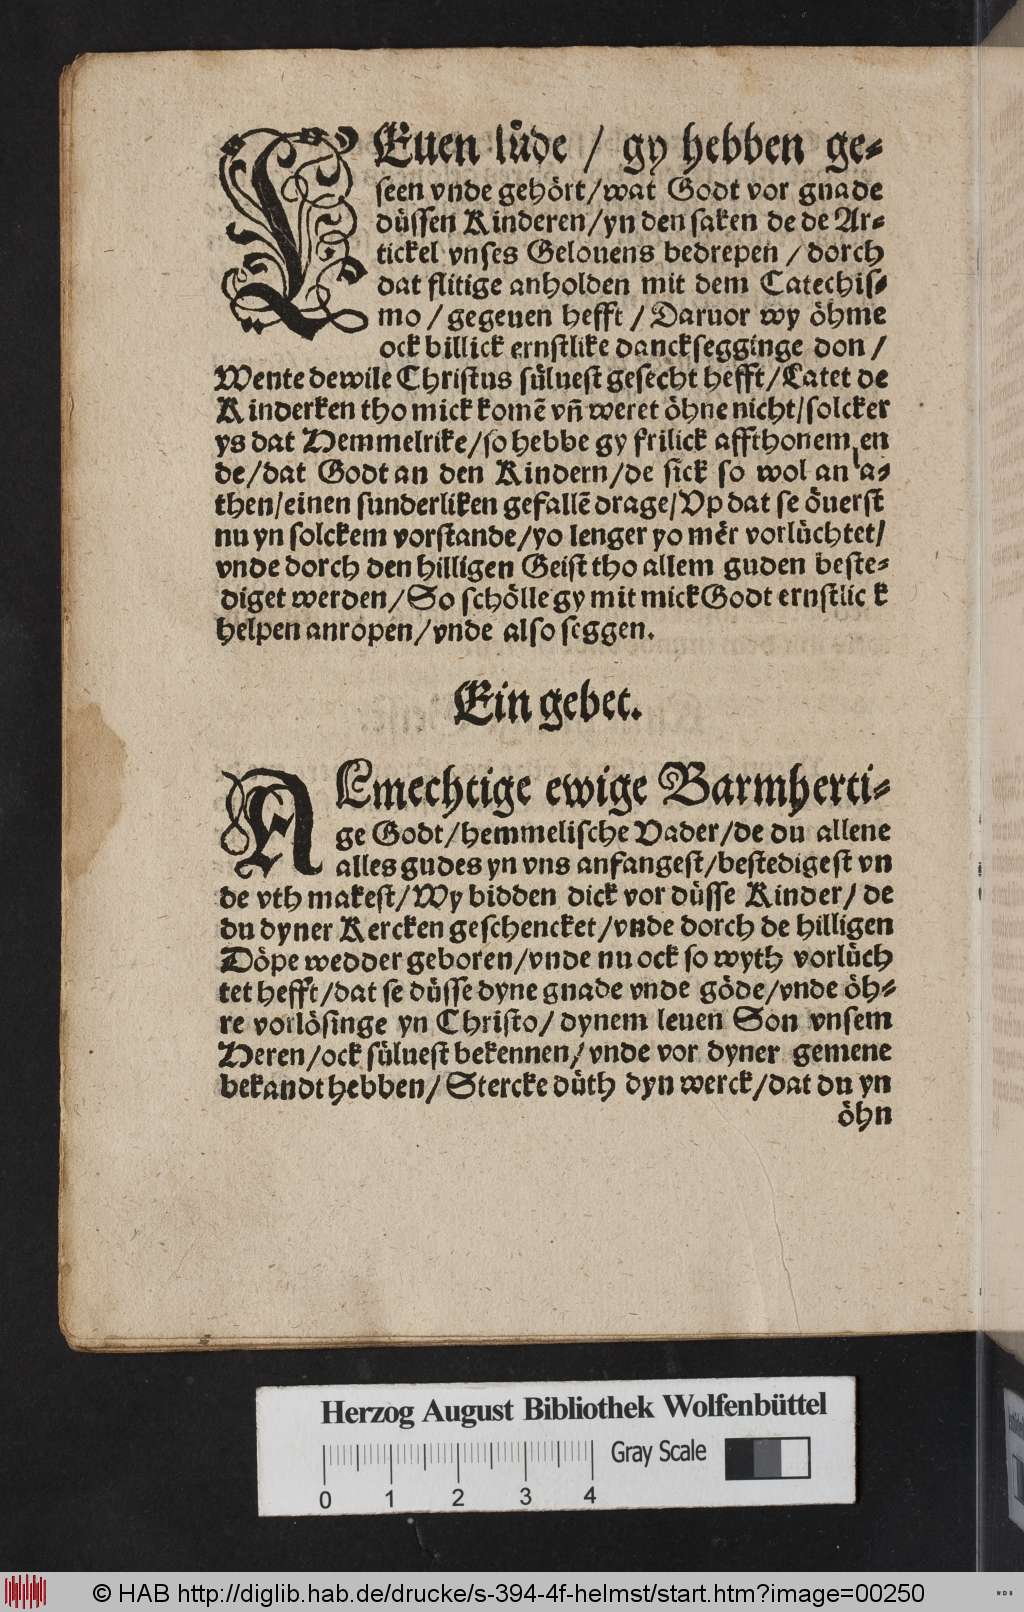 LEuen lüde / gy hebben ge-
seen vnde gehört/wat Godt vor gnade
düssen Kinderen/yn den saken de de Ar-
tickel vnses Gelouens bedrepen / dorch
dat flitige anholden mit dem Catechis-
mo / gegeuen hefft / Daruor wy öhme
ock billick ernstlike dancksegginge don /
Wente dewile Christus süluest gesecht hefft/Latet de
Kinderken tho mick komē vn̄ weret öhne nicht/solcker
ys dat Hemmelrike/so hebbe gy frilick affthonemen
de/dat Godt an den Kindern/de sick so wol an la-
then/einen sunderliken gefallē drage/Vp dat se öuerst
nu yn solckem vorstande/yo lenger yo mēr vorlüchtet/
vnde dorch den hilligen Geist tho allem guden beste-
diget werden/So schölle gy mit mick Godt ernstlick
helpen anropen/vnde also seggen.
Ein gebet.
ALmechtige ewige Barmherti-
ge Godt/hemmelische Vader/de du allene
alles gudes yn vns anfangest/bestedigest vn
de vth makest/Wy bidden dick vor düsse Kinder/ de
du dyner Kercken geschencket/vnde dorch de hilligen
Döpe wedder geboren/vnde nu ock so wyth vorlüch
tet hefft/dat se düsse dyne gnade vnde göde/vnde öh-
re vorlösinge yn Christo/ dynem leuen Son vnsem
Heren/ock süluest bekennen/vnde vor dyner gemene
bekandt hebben/ Stercke düth dyn werck/dat du yn
öhn
Herzog August Bibliothek Wolfenbüttel
Gray Scale
0 1 2 3 4
© HAB http://diglib.hab.de/drucke/s-394-4f-helmst/start.htm?image=00250